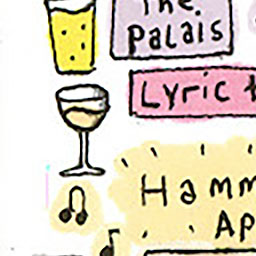 The
Palais
Lyric
Hamm
Ap